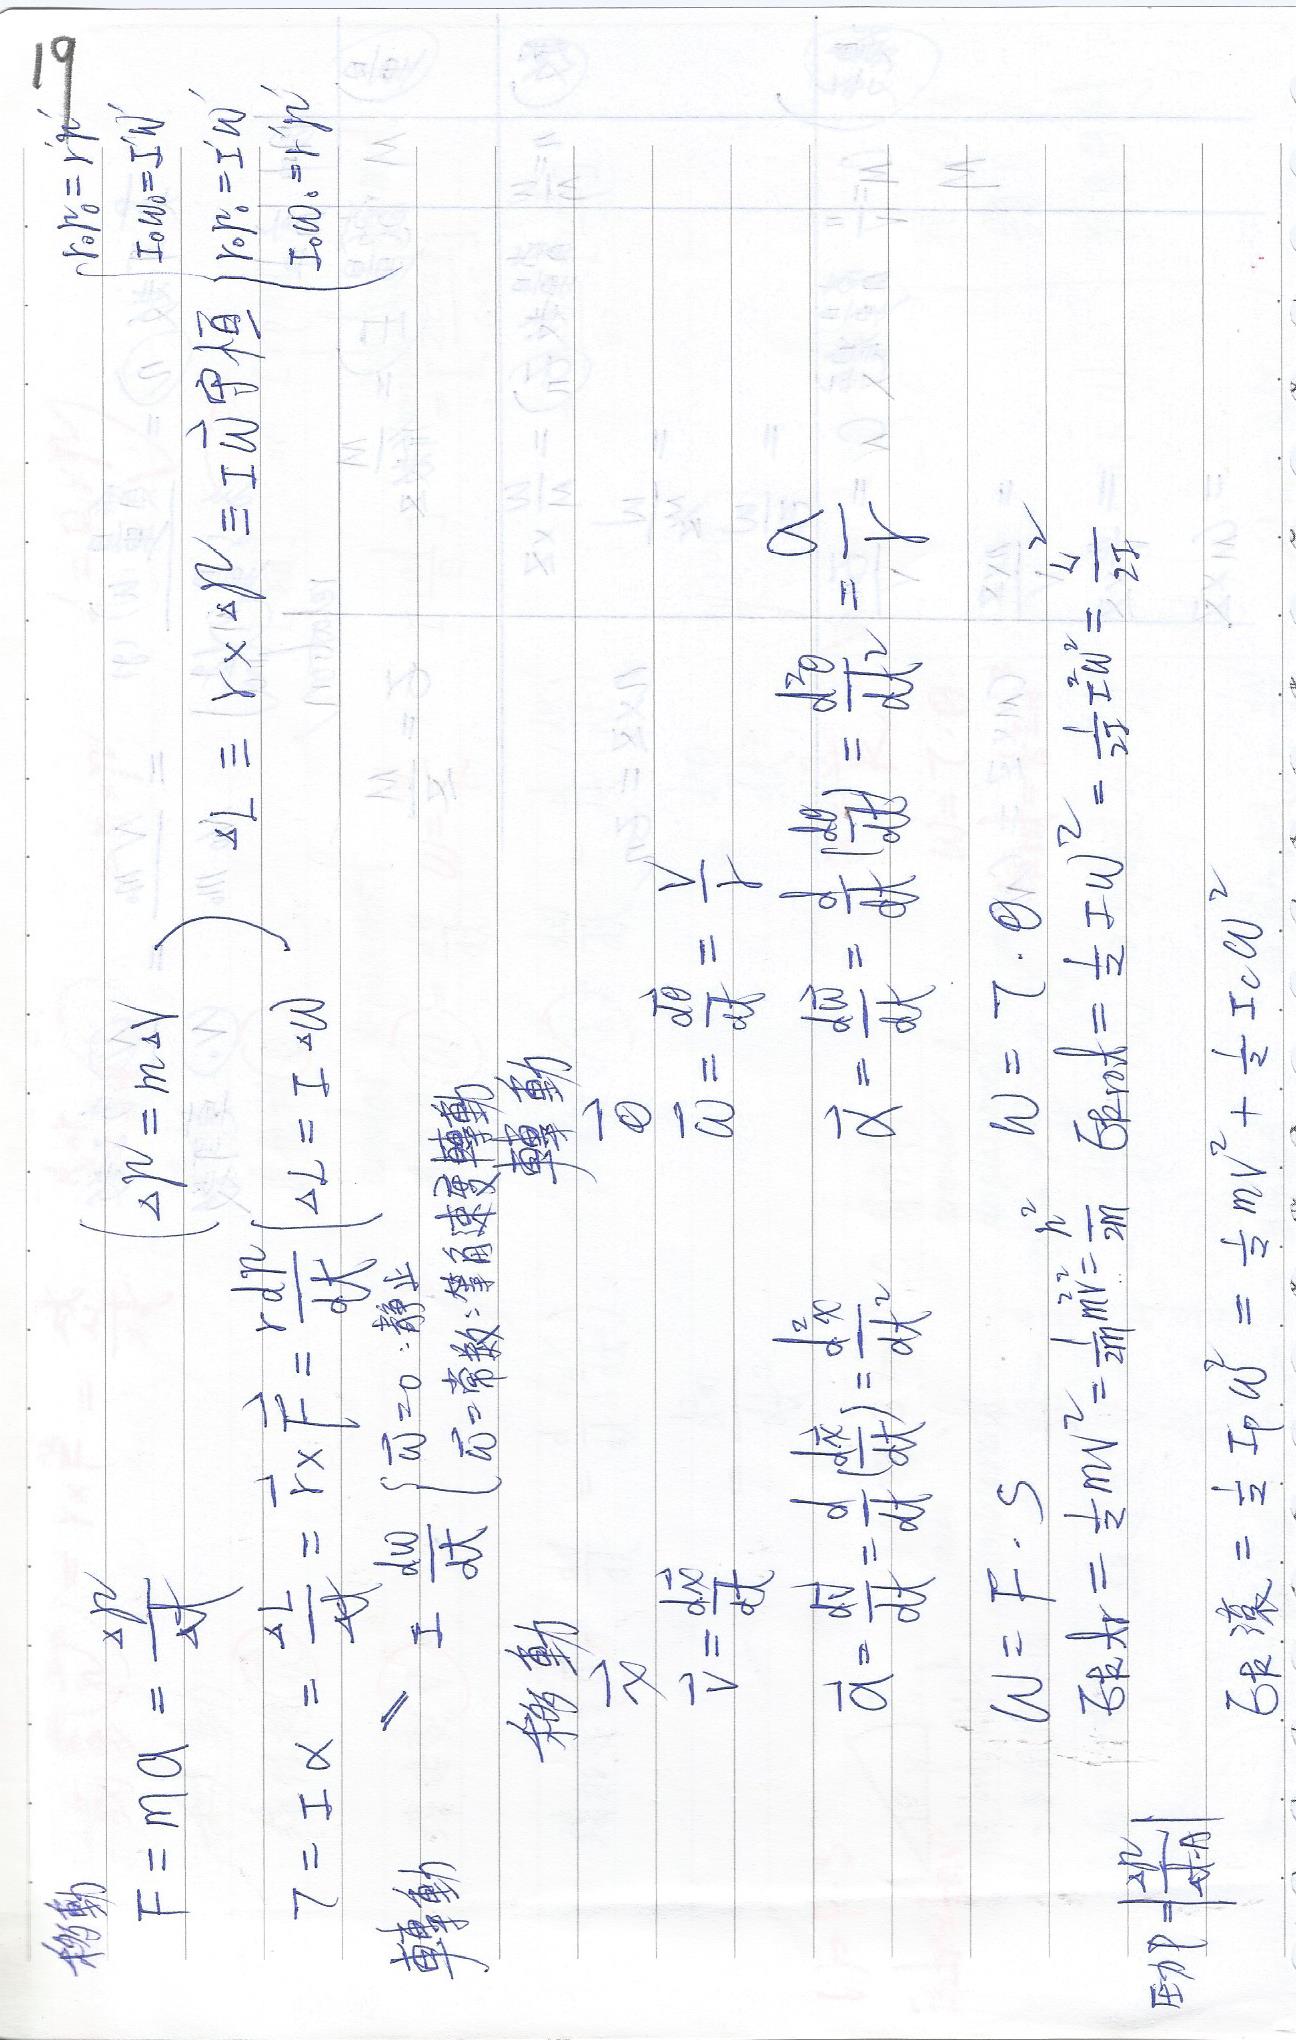 19
移動
F = ma = Δp/Δt (Δp = mΔv)
τ = Iα = ΔL/Δt = r⃗ × F⃗ = rdp/dt (ΔL = IΔω)
ΔL ≡ r × Δp ≡ Iω⃗ 守恆
r₀p₀ = r'p'
I₀ω₀ = I'ω'
r₀p₀ = I'ω'
I₀ω₀ = r'p'
轉動
∥ I dω/dt { ω⃗ = 0 : 靜止
ω⃗ = 常數 : 等角速度轉動
移動 轉動
x⃗ θ⃗
v⃗ = dx⃗/dt ω⃗ = dθ⃗/dt = v/r
a⃗ = dv⃗/dt = d/dt (dx⃗/dt) = d²x/dt² α⃗ = dω⃗/dt = d/dt (dθ/dt) = d²θ/dt² = a/r
W = F · S W = τ · θ
Ektr = 1/2 mv² = 1/2m m²v² = p²/2m Ekrot = 1/2 Iω² = 1/2I I²ω² = L²/2I
壓力P = |Δp/Δt·A|
Ek滾 = 1/2 Ipω² = 1/2 mv² + 1/2 Icω²